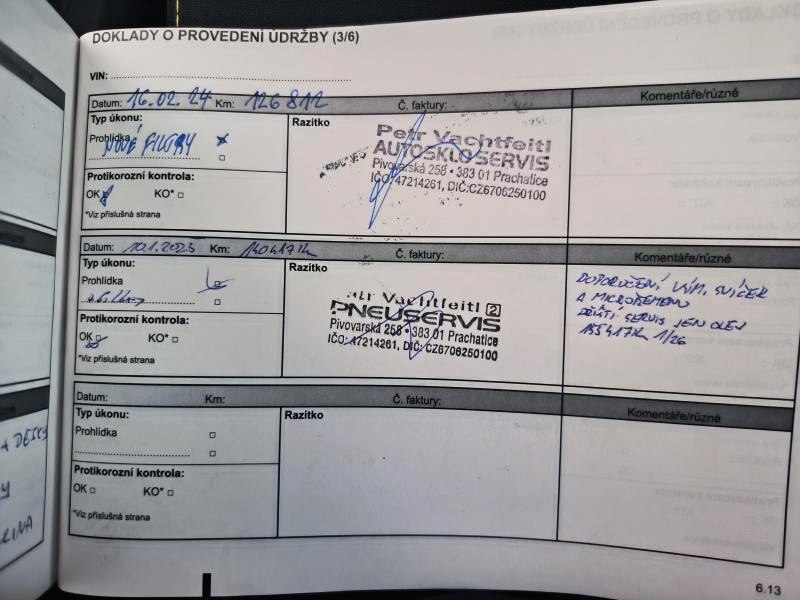 DOKLADY O PROVEDENÍ ÚDRŽBY (3/6)
VIN:
Datum: 16.02.24 Km: 126812 Č. faktury: Komentáře/různé
Typ úkonu: Razítko
Prohlídka
NOVÉ FILTRY
Protikorozní kontrola:
OK KO*
*Viz příslušná strana
Petr Vachtfeitl
AUTOSKLO SERVIS
Pivovarská 258 • 383 01 Prachatice
IČO: 47214261, DIČ:CZ6706250100
Datum: 10.1.2025 Km: 140417k Č. faktury: Komentáře/různé
Typ úkonu: Razítko
Prohlídka
Protikorozní kontrola:
OK KO*
*Viz příslušná strana
Petr Vachtfeitl 2
PNEUSERVIS
Pivovarská 258 • 383 01 Prachatice
IČO: 47214261, DIČ: CZ6706250100
DOPORUČENÍ VÝM. SVÍČEK
A MIKROŘEMENU
PŘÍŠTÍ SERVIS JEN OLEJ
155417k 1/26
Datum: Km: Č. faktury: Komentáře/různé
Typ úkonu: Razítko
Prohlídka
Protikorozní kontrola:
OK KO*
*Viz příslušná strana
6.13